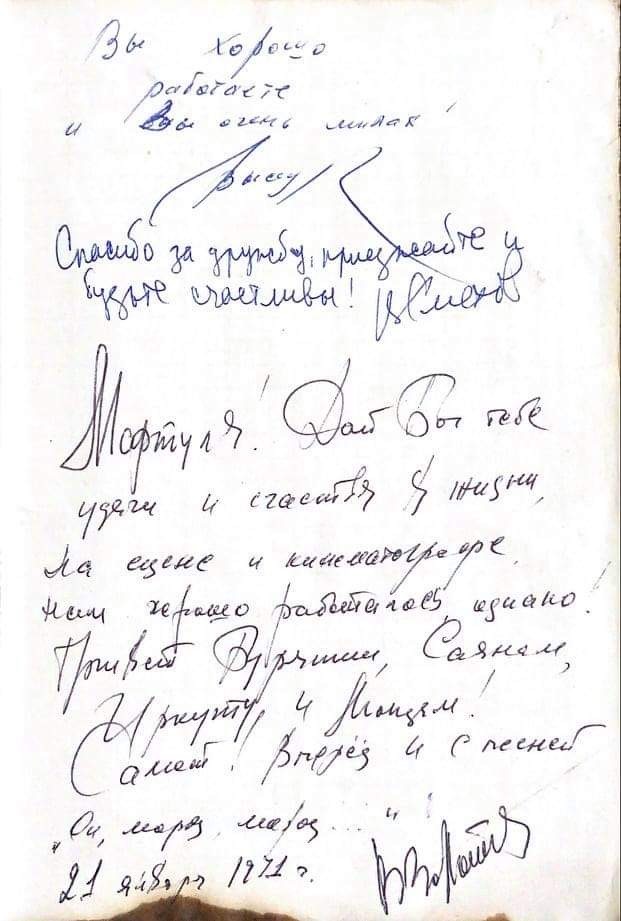 Вы хорошо
работаете
и Вы очень милая!
Спасибо за дружбу, приезжайте и
будьте счастливы! В Смехов
Дай Бог тебе
удачи и счастья в жизни,
на сцене и кинематографе.
Нам хорошо работалось, однако!
Привет Бурятии, Саянам,
Иркуту и Мондам!
Вперёд и с песней
"Ой, мороз, мороз..."
21 января 1971 г.